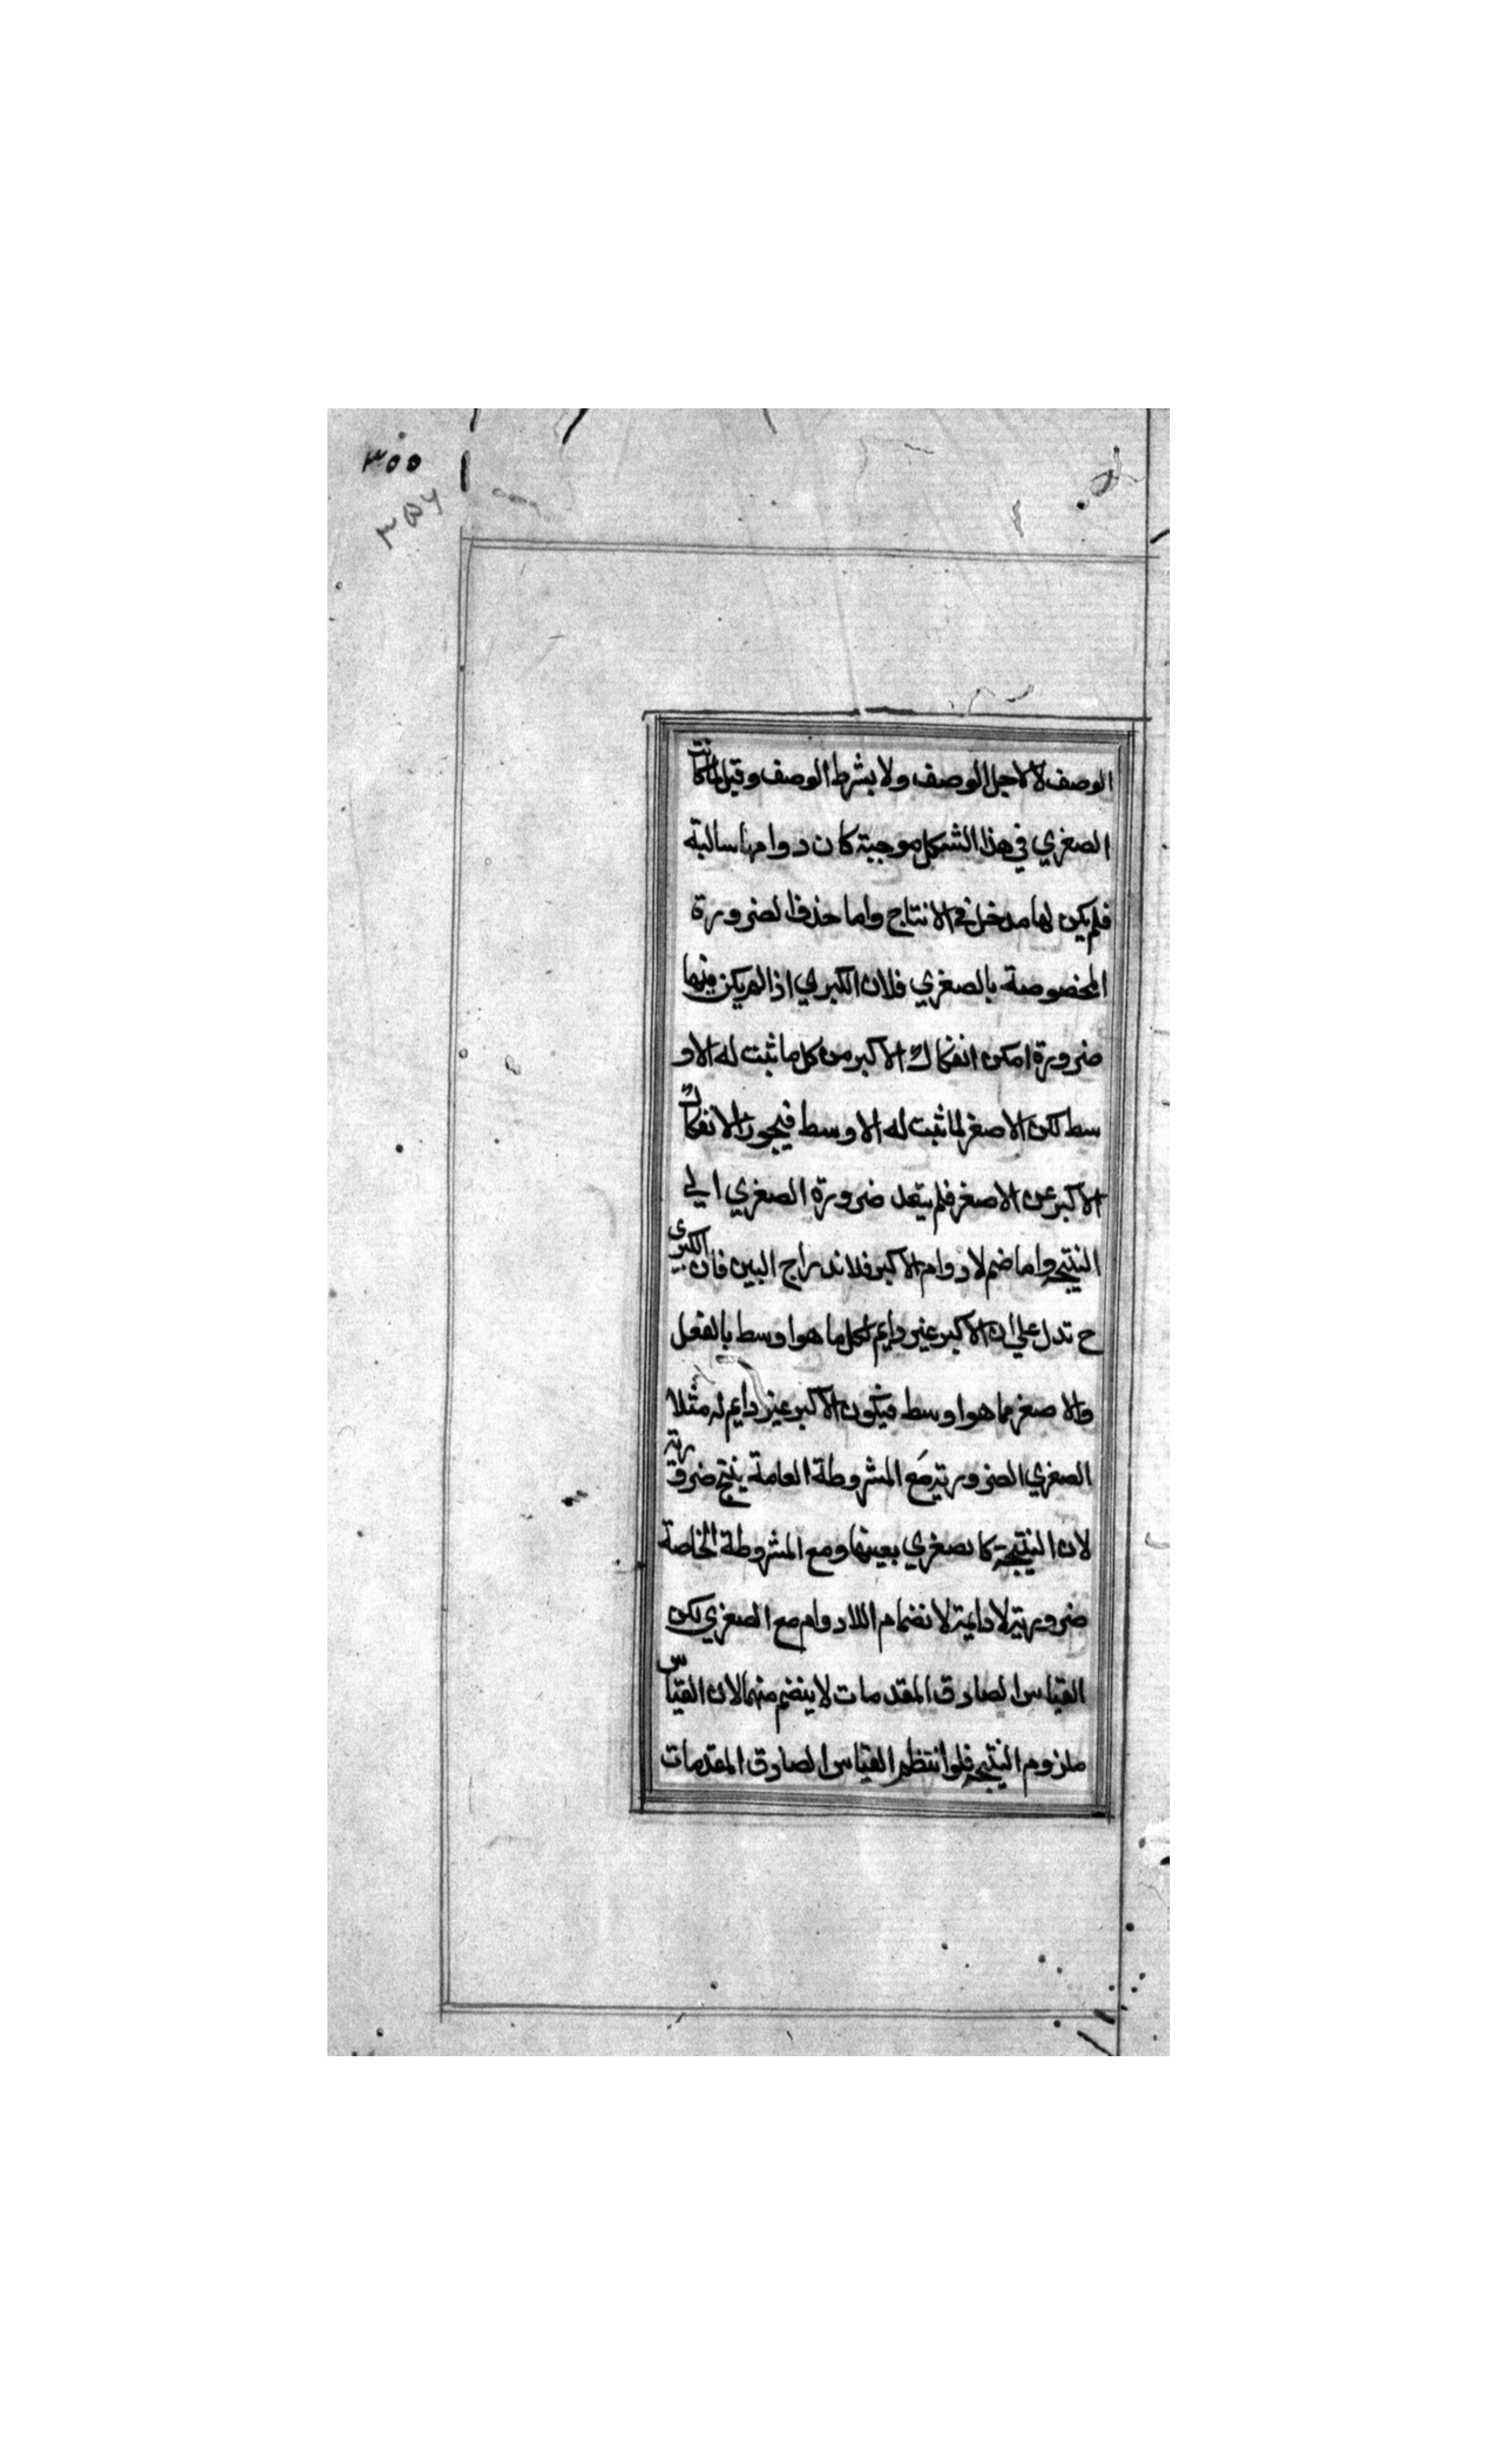 ٣٥٥
٣٥٦
الوصف لا لاجل الوصف ولا بشرط الوصف وقيل لما كانت
الصغري في هذا الشكل موجبة كان دوامها سالبة
فلم يكن لها مدخل في الانتاج واما حذف الضرورة
المخصوصة بالصغري فلان الكبري اذا لم يكن فيها
ضرورة امكن انفكاك الاكبر من كل ما ثبت له الاو
سط لكن الاصغر لما ثبت له الاوسط فيجوز الانفكاك
الاكبر عن الاصغر فلم يتعد ضرورة الصغري الي
النتيجة واما ضم لا دوام الاكبر فلاندراج البين فان الكبري
ح تدل علي ان الاكبر غير دايم لكل ما هو اوسط بالفعل
والاصغر مما هو اوسط فيكون الاكبر غير دايم له مثلا
الصغري الضرورية مع المشروطة العامة ينتج ضرورية
لان النتيجة كالصغري بعينها ومع المشروطة الخاصة
ضرورية لا دايمة لانضمام اللادوام مع الصغري لكن
القياس الصادق المقدمات لا ينضم منهما لان القياس
ملزوم النتيجة فلو انتظم القياس الصادق المقدمات